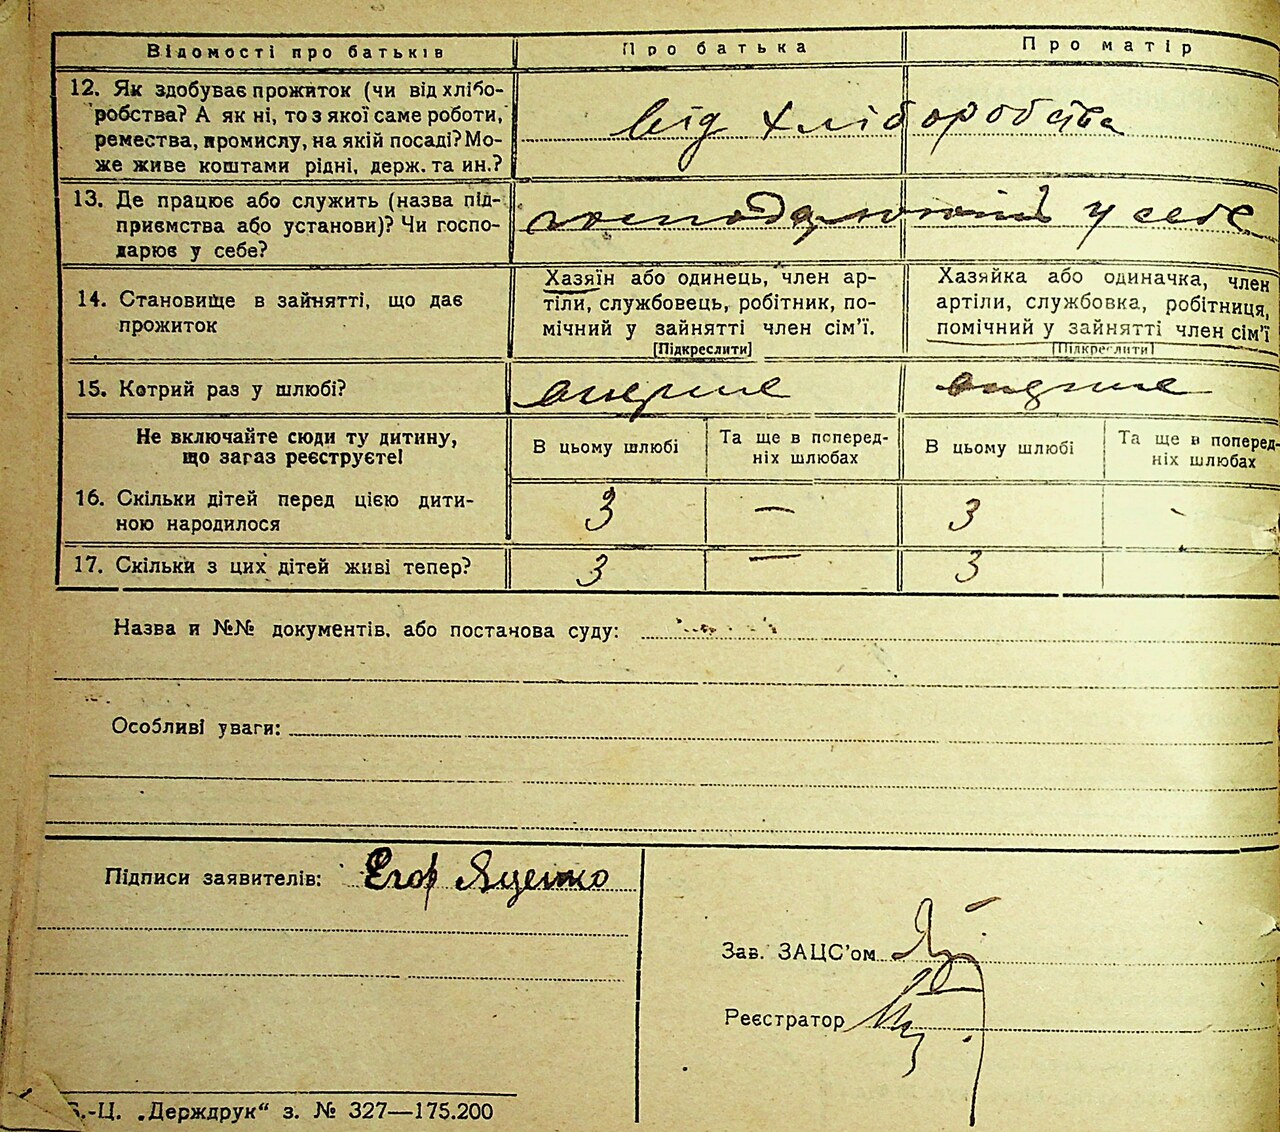 Відомості про батьків
Про батька
Про матір
12. Як здобуває прожиток (чи від хлібо-
робства? А як ні, то з якої саме роботи,
ремества, промислу, на якій посаді? Мо-
же живе коштами рідні, держ. та ин.?
від хліборобства
13. Де працює або служить (назва під-
приємства або установи)? Чи госпо-
дарює у себе?
у себе
14. Становище в зайнятті, що дає
прожиток
Хазяїн або одинець, член ар-
тіли, службовець, робітник, по-
мічний у зайнятті член сім'ї.
[Підкреслити]
Хазяйка або одиначка, член
артіли, службовка, робітниця,
помічний у зайнятті член сім'ї
[Підкреслити]
15. Котрий раз у шлюбі?
вперше
вперше
Не включайте сюди ту дитину,
що зараз реєструєте!
В цьому шлюбі
Та ще в поперед-
ніх шлюбах
В цьому шлюбі
Та ще в поперед-
ніх шлюбах
16. Скільки дітей перед цією дити-
ною народилося
3
—
3
-
17. Скільки з цих дітей живі тепер?
3
—
3
Назва и №№ документів, або постанова суду:
Особливі уваги:
Підписи заявителів: Егор Яценко
Зав. ЗАЦС'ом
Реєстратор
Б.-Ц. „Держдрук“ з. № 327—175.200